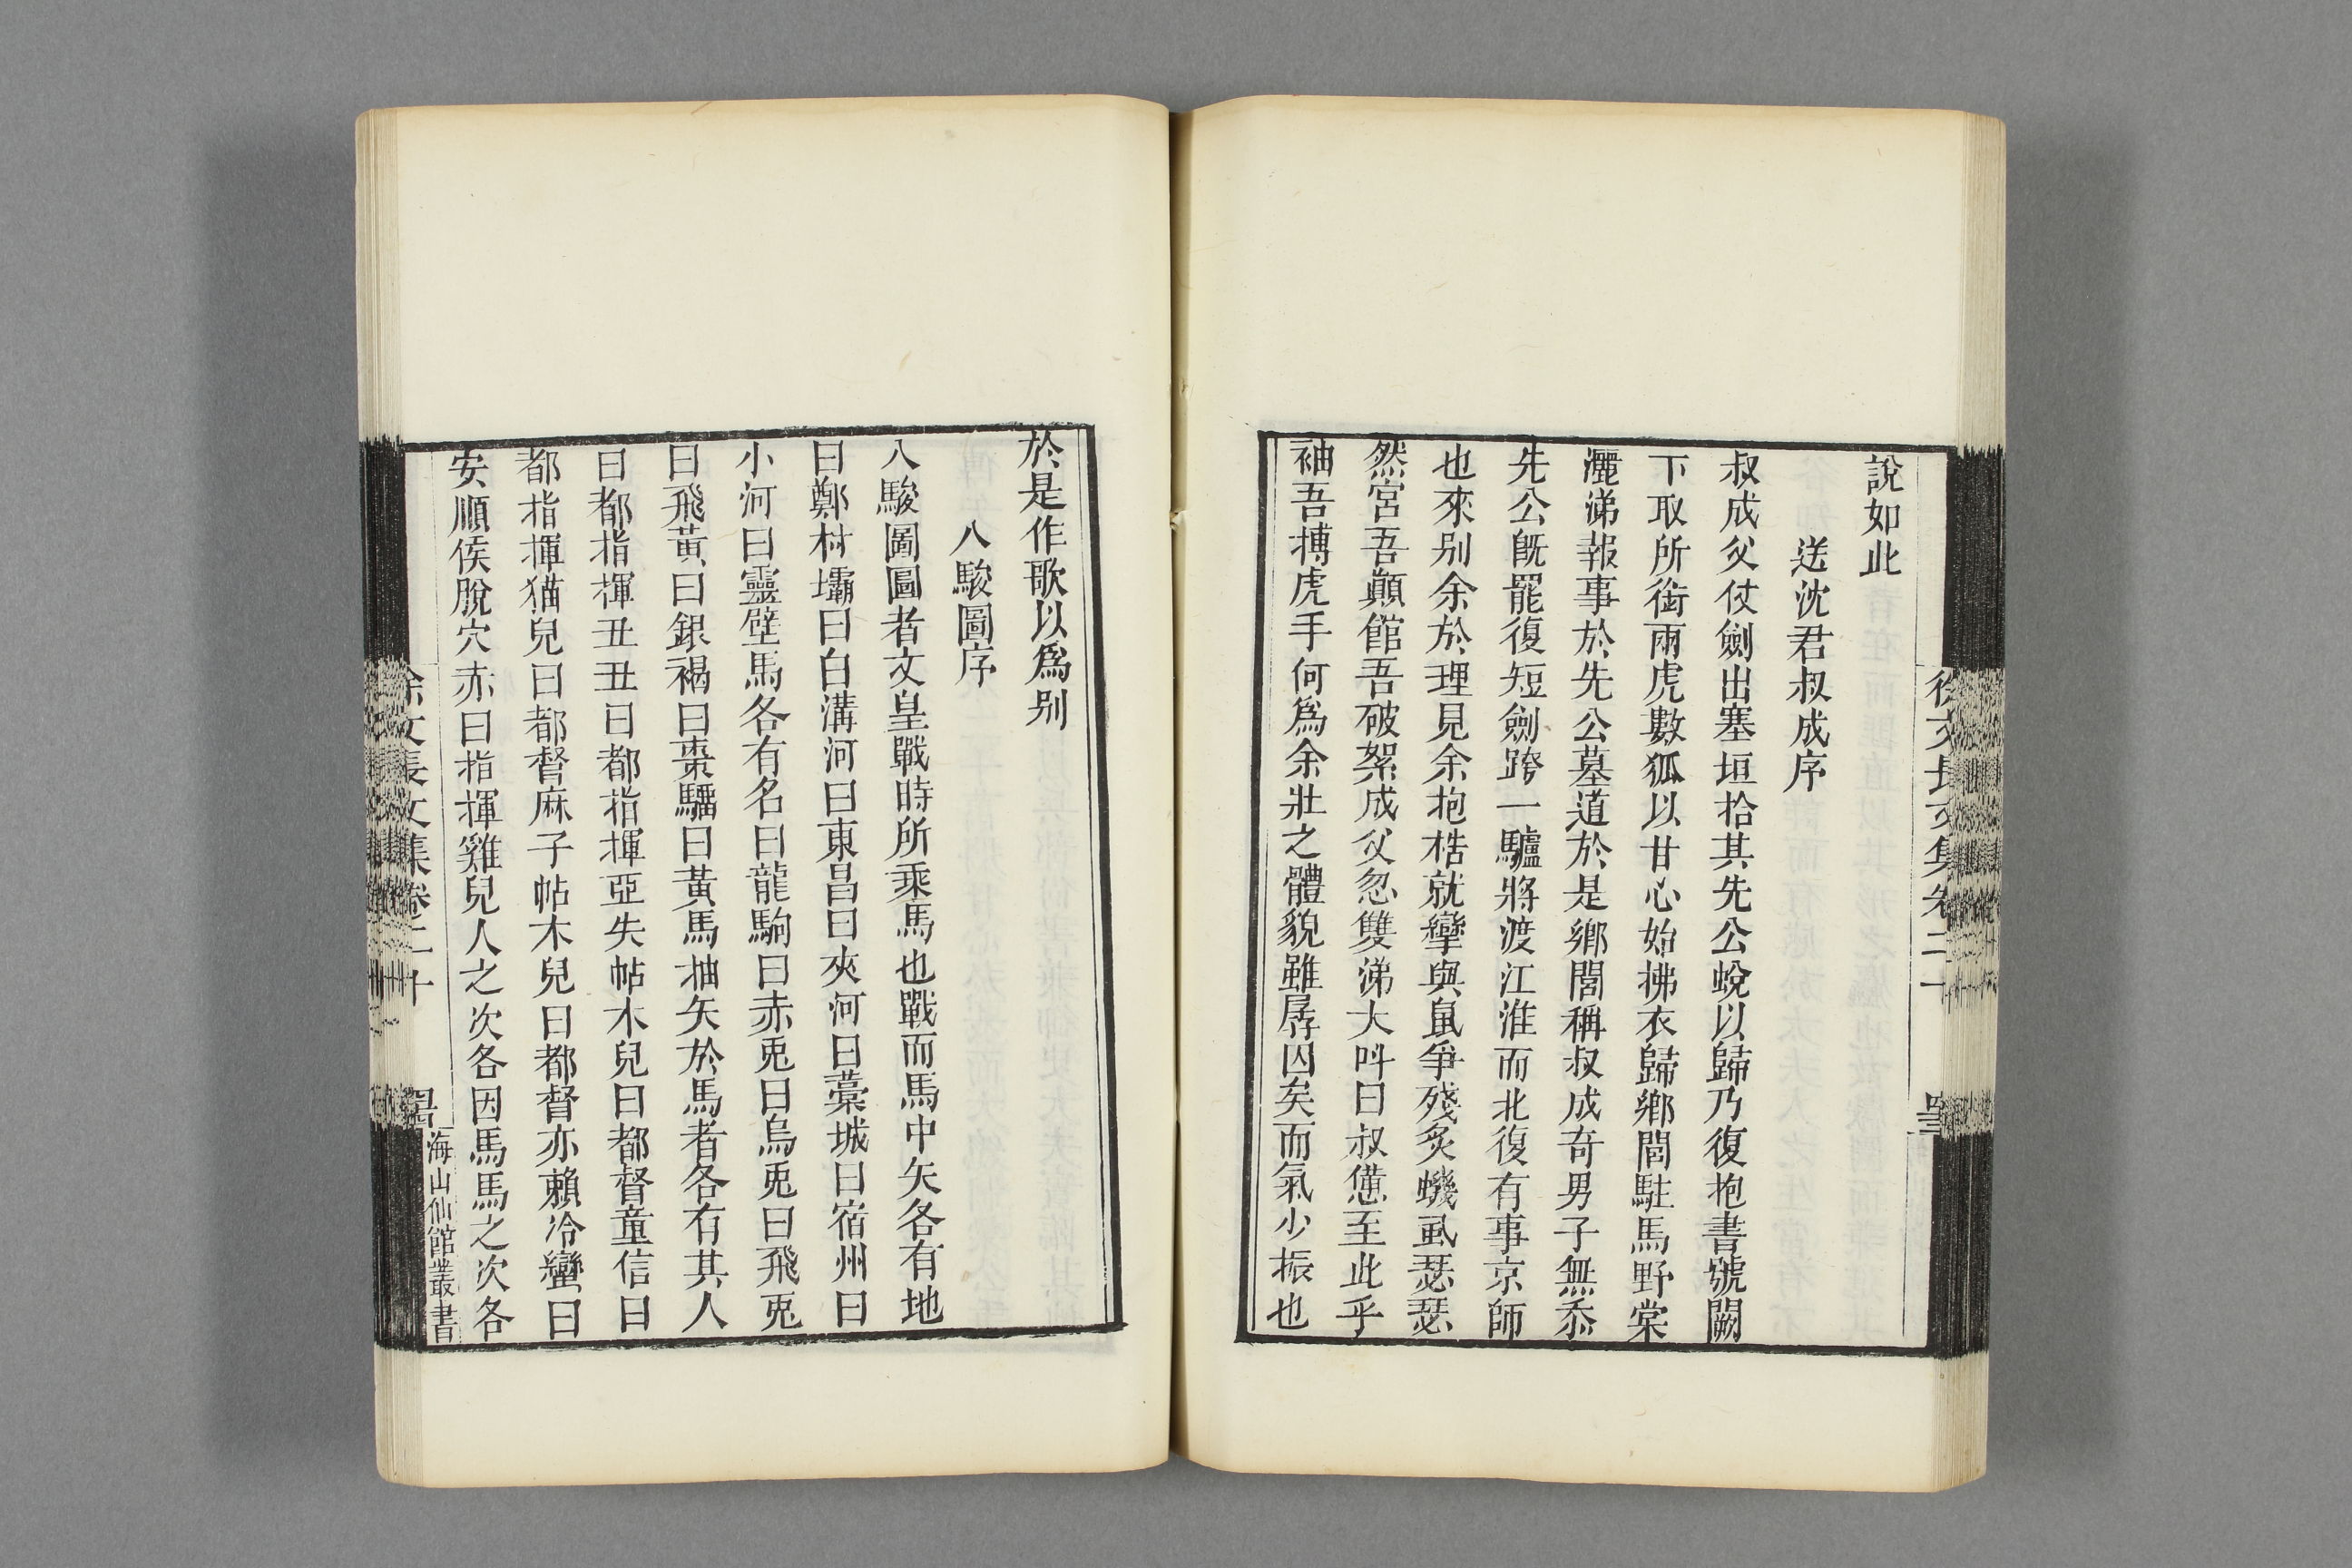 說如此
送沈君叔成序
叔成父仗劍出塞垣拾其先公蛻以歸乃復抱書號闕
下取所銜兩虎數狐以甘心始拂衣歸鄉閭駐馬野棠
灑涕報事於先公墓道於是鄉閭稱叔成奇男子無忝
先公旣罷復短劍跨一驢將渡江淮而北復有事京師
也來别余於理見余抱梏就攣與鼠爭殘炙蟣虱瑟瑟
然宮吾顚館吾破絮成父忽雙涕大呌曰叔憊至此乎
袖吾搏虎手何爲余壯之體貌雖孱囚矣而氣少振也
徐文長文集卷二十
於是作歌以爲别
八駿圖序
八駿圖圖者文皇戰時所乘馬也戰而馬中矢各有地
曰鄭村壩曰白溝河曰東昌曰夾河曰藁城曰宿州曰
小河曰靈壁馬各有名曰龍駒曰赤兎曰烏兎曰飛兎
曰飛黃曰銀褐曰棗騮曰黃馬抽矢於馬者各有其人
曰都指揮丑丑曰都指揮亞失帖木兒曰都督童信曰
都指揮猫兒曰都督麻子帖木兒曰都督亦賴冷蠻曰
安順侯脫穴赤曰指揮雞兒人之次各因馬馬之次各
徐文長文集卷二十
海山仙館叢書